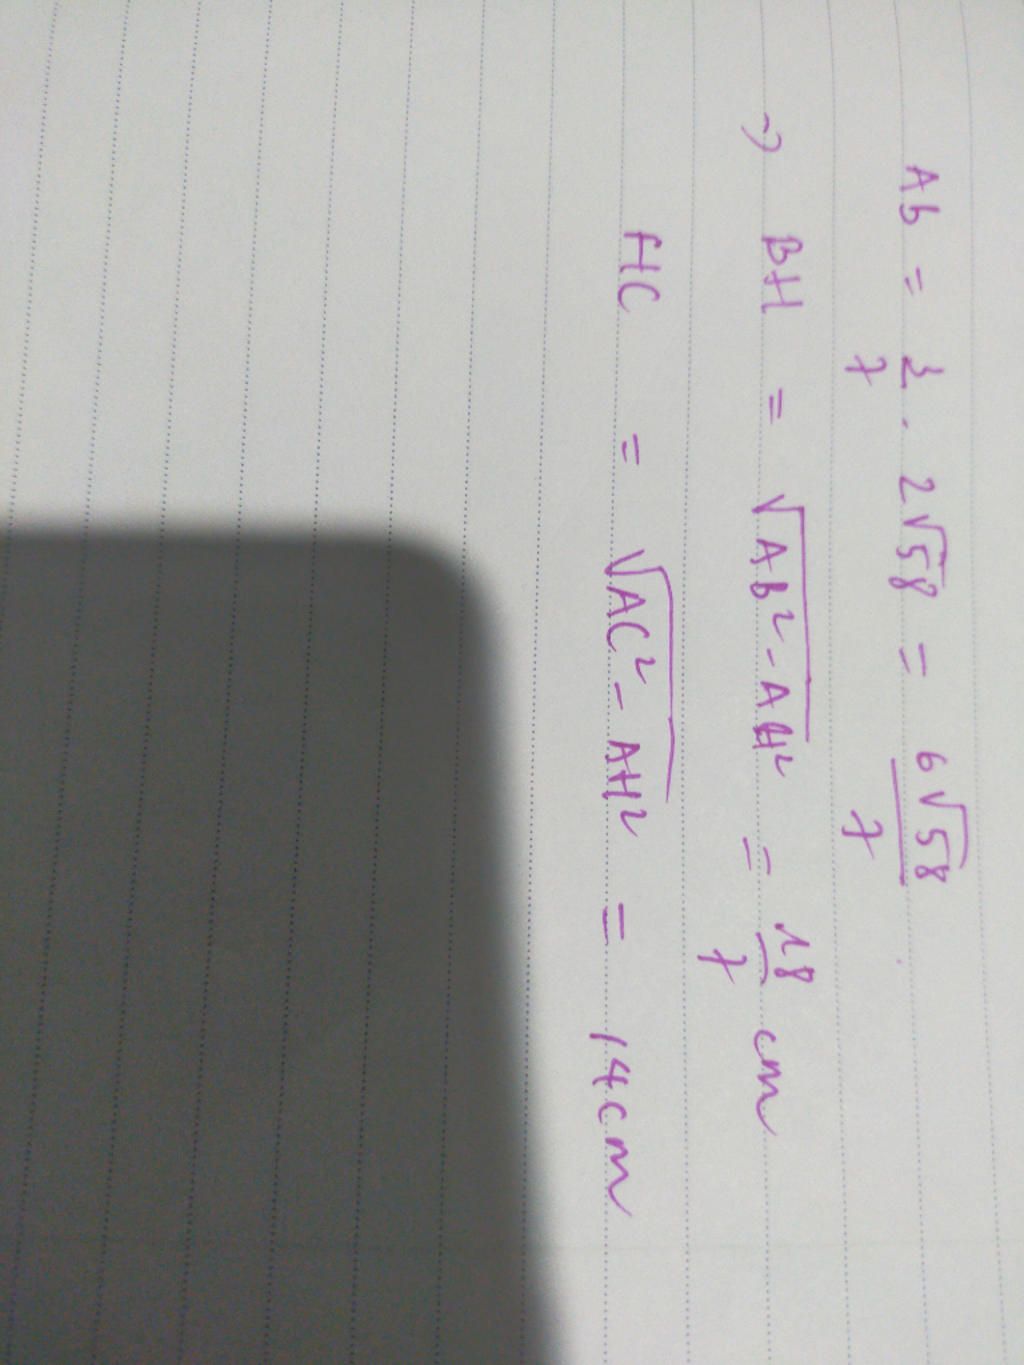 Ab = 3/7 . 2√58 = 6√58/7
→ BH = √(Ab² - AH²) = 18/7 cm
HC = √(AC² - AH²) = 14cm